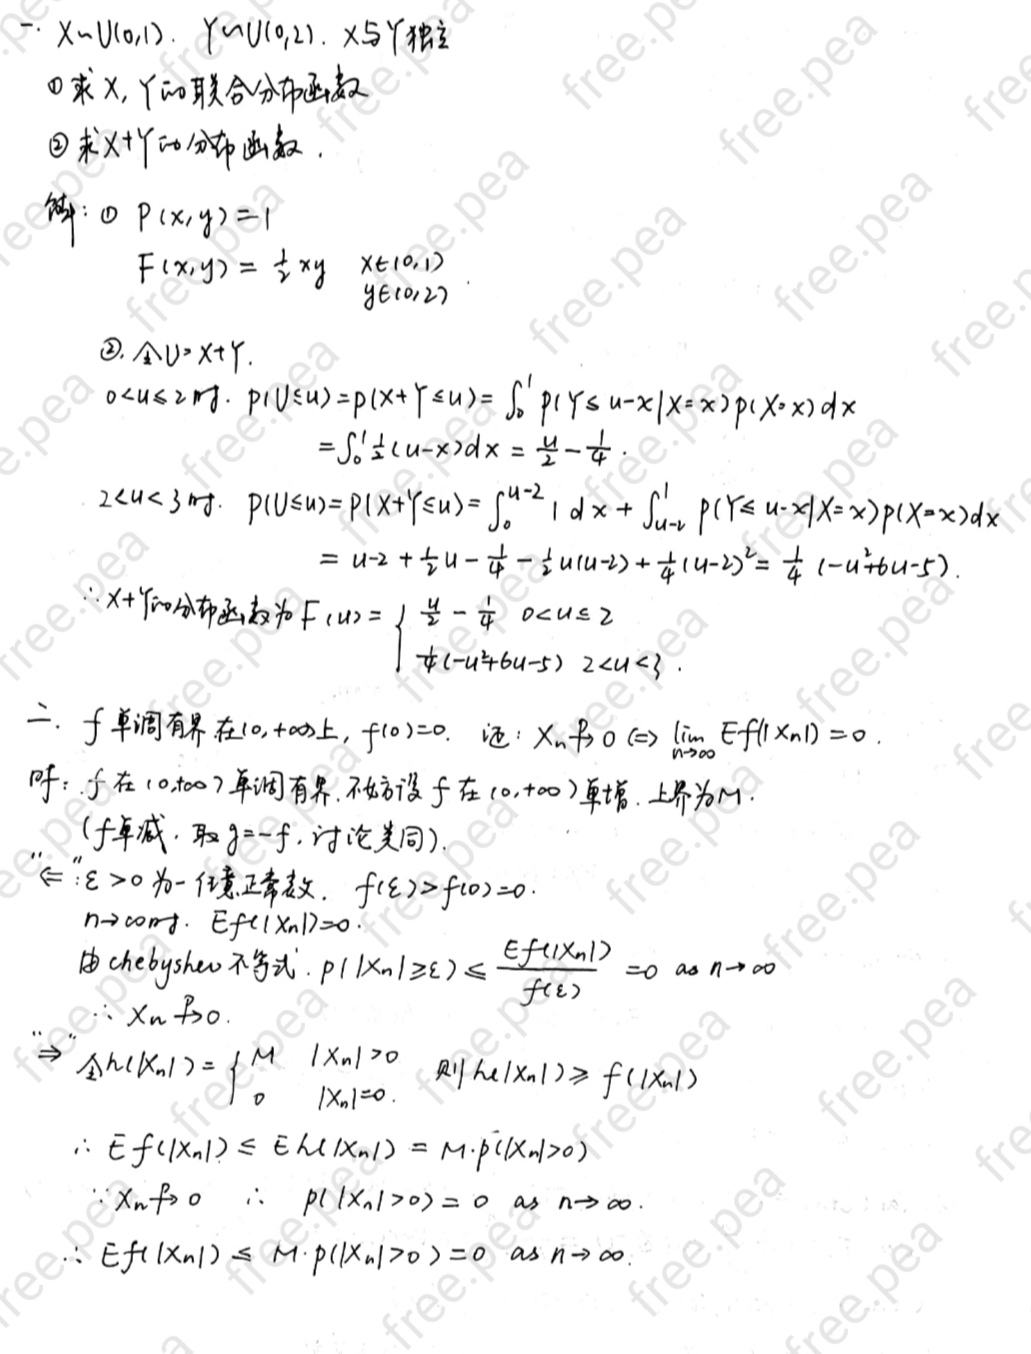 一. X~U(0,1). Y~U(0,2). X与Y独立
① 求X, Y的联合分布函数
② 求X+Y的分布函数.
解: ① P(x,y)=1
F(x,y)= 1/2 xy x∈(0,1)
y∈(0,2).
②. 令U=X+Y.
0<u≤2时. P(U≤u)=P(X+Y≤u)=∫₀¹ P(Y≤u-x|X=x)P(X=x)dx
=∫₀¹ 1/2(u-x)dx = u/2 - 1/4.
2<u<3时. P(U≤u)=P(X+Y≤u)=∫₀^{u-2} 1 dx + ∫_{u-2}^1 P(Y≤u-x|X=x)P(X=x)dx
= u-2 + 1/2 u - 1/4 - 1/2 u(u-2) + 1/4 (u-2)² = 1/4 (-u²+6u-5).
∴ X+Y的分布函数为F(u)= { u/2 - 1/4 0<u≤2
1/4(-u²+6u-5) 2<u<3.
二. f单调有界在(0,+∞)上, f(0)=0. 证: Xn P→ 0 ⇔ lim_{n→∞} Ef(|Xn|)=0.
证: f在(0,+∞)单调有界. 不妨设f在(0,+∞)单增. 上界为M.
(f单减. 取g=-f, 讨论类同).
"⇐": ε>0为一任意正常数. f(ε)>f(0)=0.
n→∞时. Ef(|Xn|)=0.
由chebyshev不等式. P(|Xn|≥ε) ≤ Ef(|Xn|)/f(ε) =0 as n→∞
∴ Xn P→ 0.
"⇒" 令h(|Xn|)= { M |Xn|>0 则h(|Xn|)≥f(|Xn|)
0 |Xn|=0.
∴ Ef(|Xn|) ≤ Eh(|Xn|) = M·P(|Xn|>0)
∵ Xn P→ 0 ∴ P(|Xn|>0)=0 as n→∞.
∴ Ef(|Xn|) ≤ M·P(|Xn|>0)=0 as n→∞.
free.pea